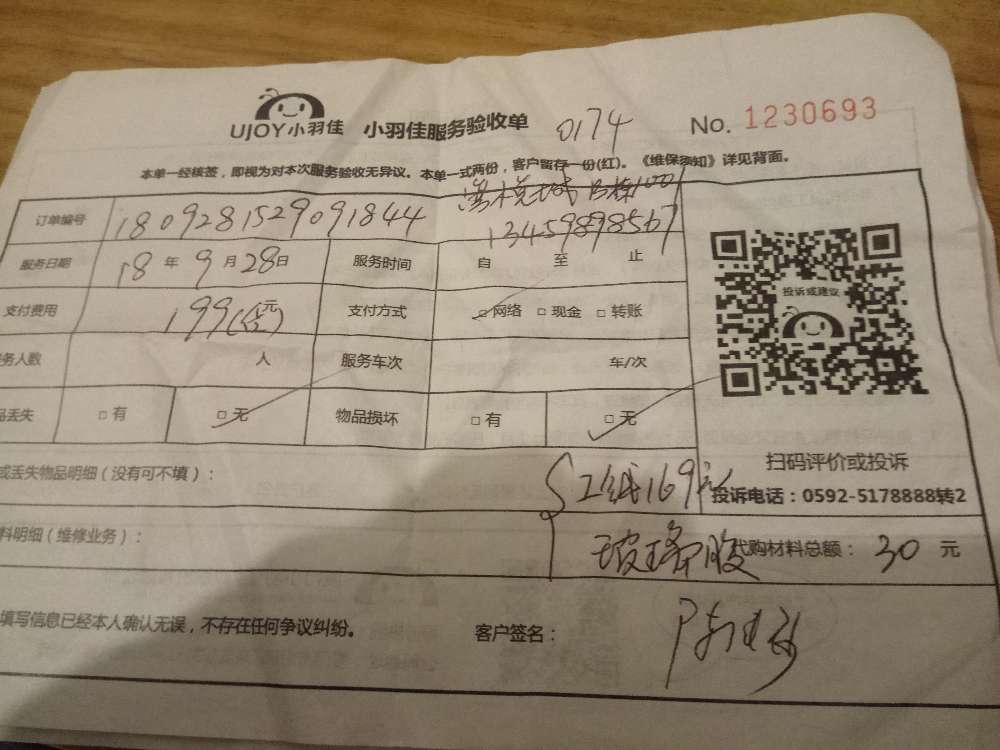 UJOY小羽佳 小羽佳服务验收单 0174 No. 1230693
本单一经核签，即视为对本次服务验收无异议。本单一式两份，客户留存一份(红)。《维保须知》详见背面。
订单编号 1809281529091844
13459898567
服务日期 18 年 9 月 28 日 服务时间 自 至 止
支付费用 199(元) 支付方式 □网络 □现金 □转账
务人数 人 服务车次 车/次
品丢失 □有 □无 物品损坏 □有 □无
投诉或建议
扫码评价或投诉
投诉电话：0592-5178888转2
或丢失物品明细（没有可不填）：
工钱169元
料明细（维修业务）：
玻璃胶 代购材料总额： 30 元
填写信息已经本人确认无误，不存在任何争议纠纷。 客户签名：